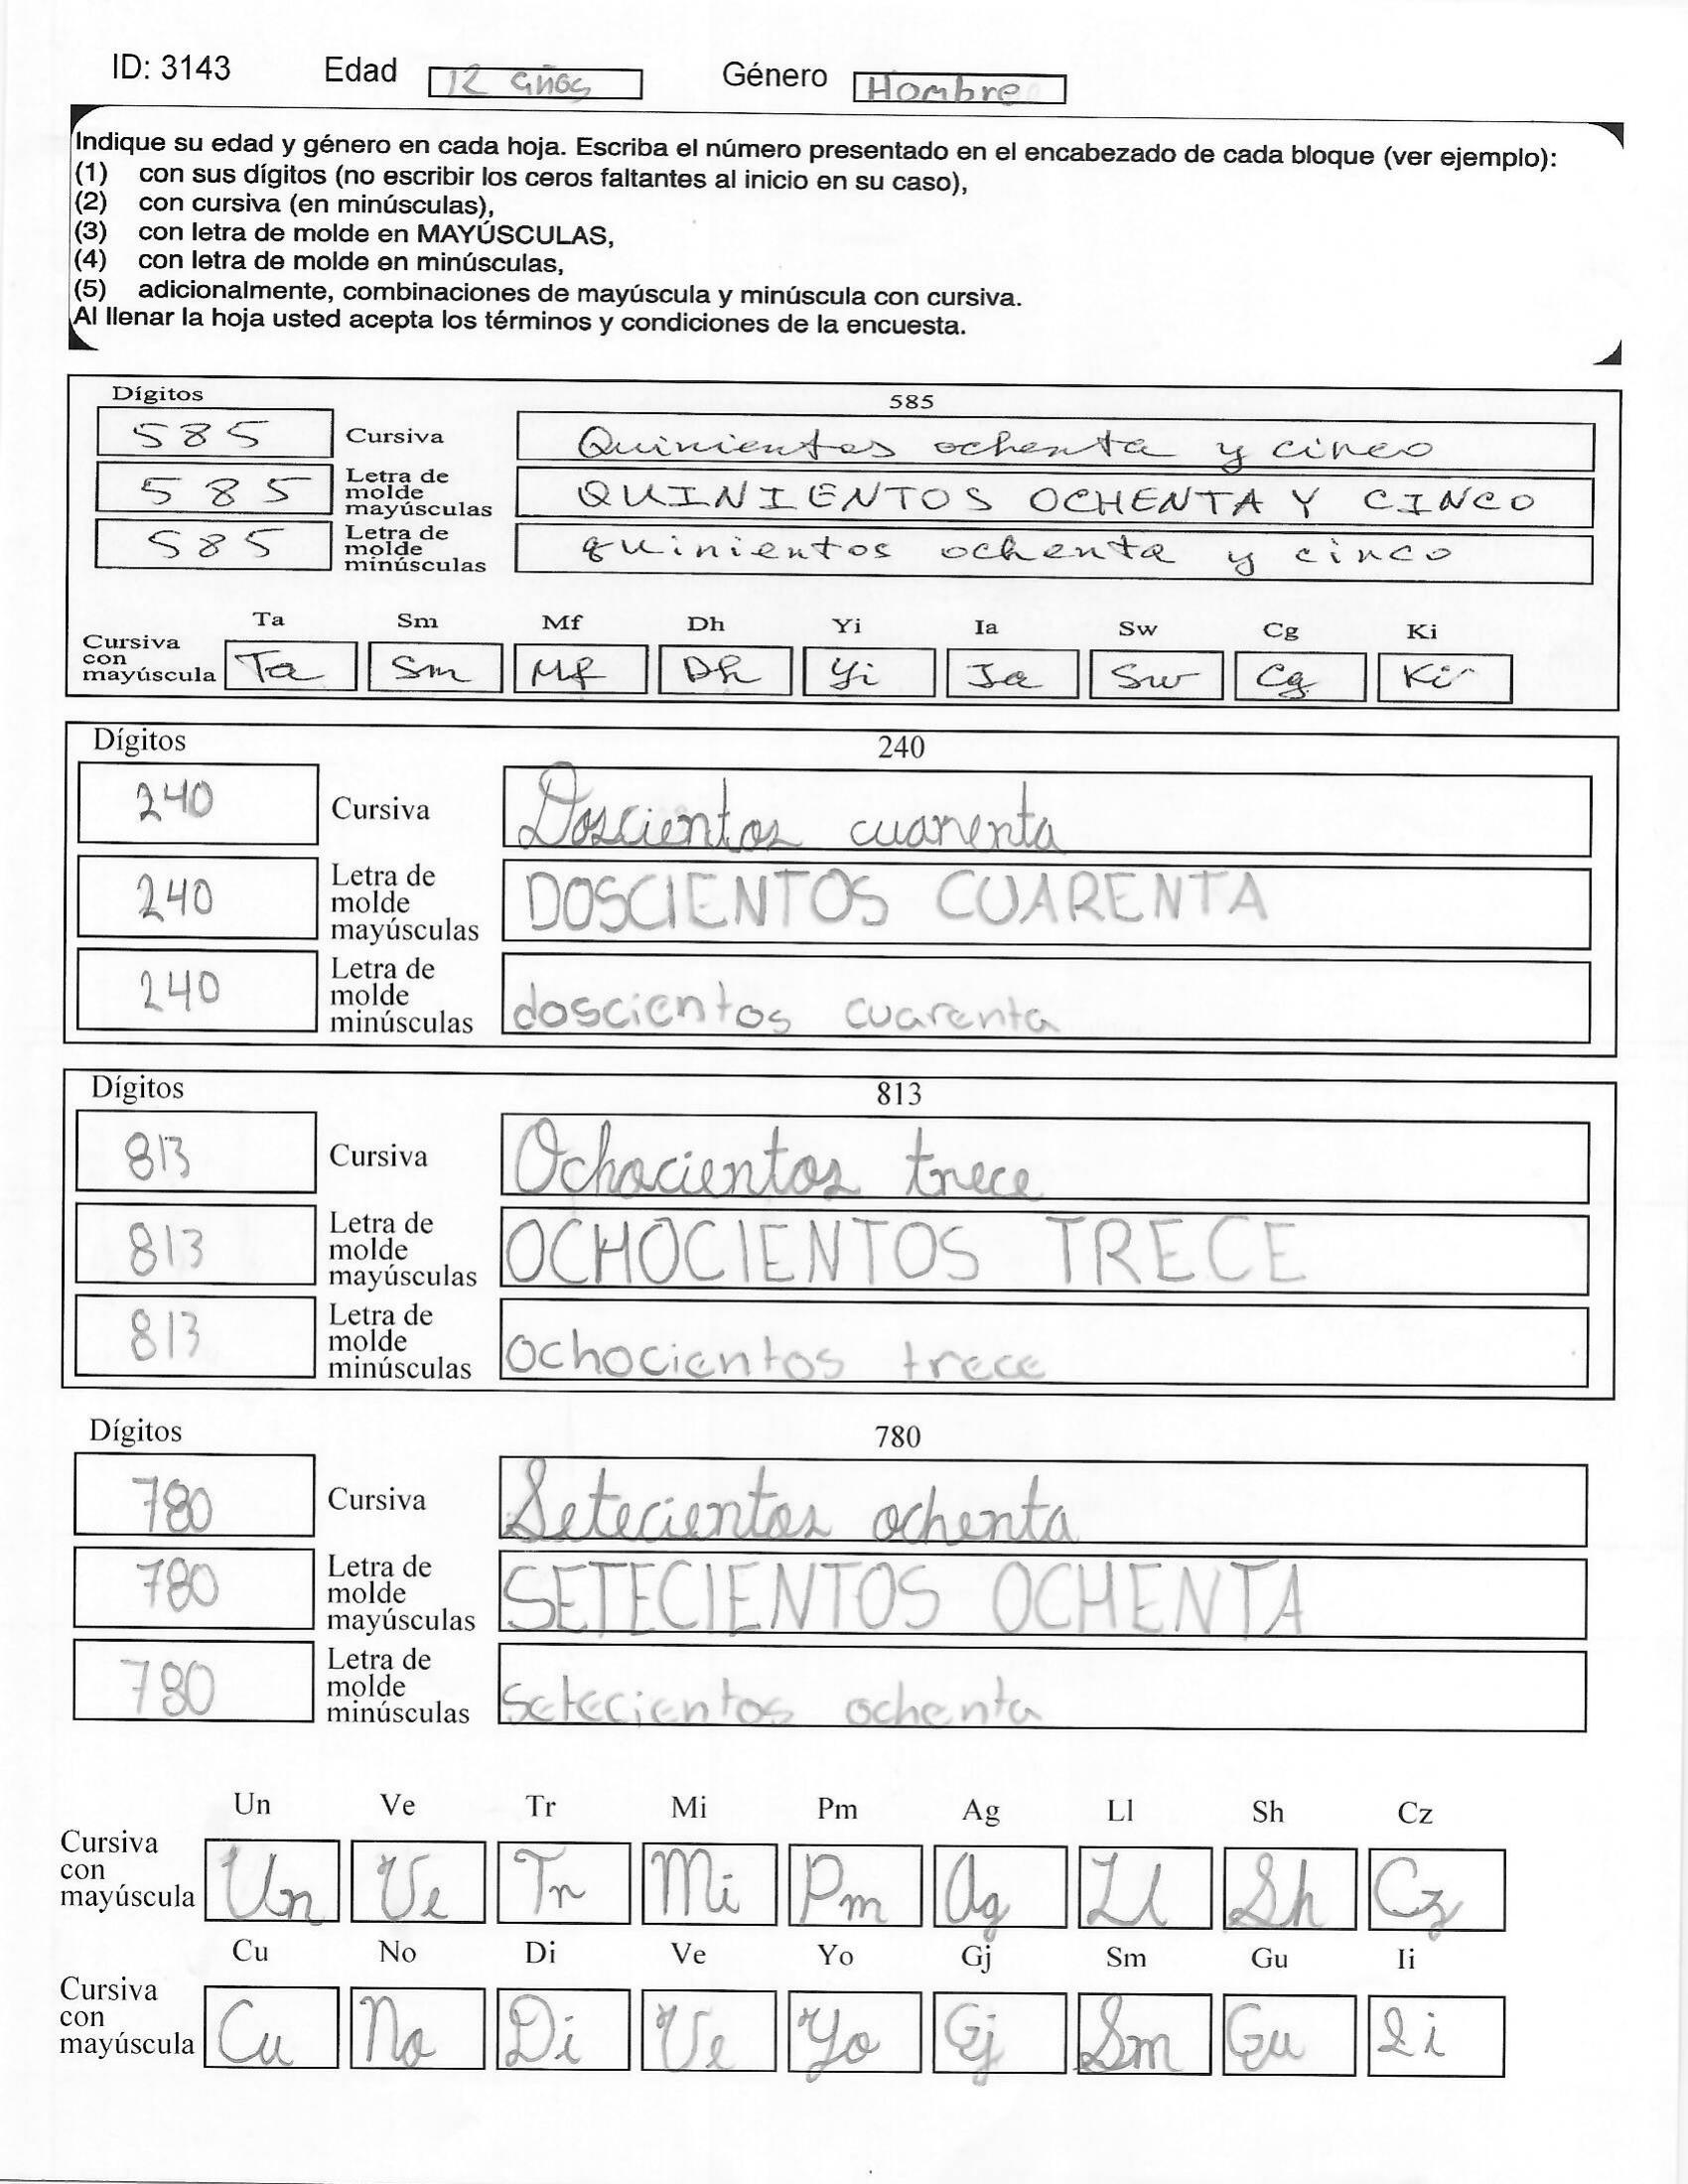 ID: 3143 Edad 12 años Género Hombre
Indique su edad y género en cada hoja. Escriba el número presentado en el encabezado de cada bloque (ver ejemplo):
(1) con sus dígitos (no escribir los ceros faltantes al inicio en su caso),
(2) con cursiva (en minúsculas),
(3) con letra de molde en MAYÚSCULAS,
(4) con letra de molde en minúsculas,
(5) adicionalmente, combinaciones de mayúscula y minúscula con cursiva.
Al llenar la hoja usted acepta los términos y condiciones de la encuesta.
Dígitos 585
585 Cursiva Quinientos ochenta y cinco
585 Letra de molde mayúsculas QUINIENTOS OCHENTA Y CINCO
585 Letra de molde minúsculas quinientos ochenta y cinco
Ta Sm Mf Dh Yi Ia Sw Cg Ki
Cursiva con mayúscula Ta Sm Mf Dh Yi Ia Sw Cg Ki
Dígitos 240
240 Cursiva Doscientos cuarenta
240 Letra de molde mayúsculas DOSCIENTOS CUARENTA
240 Letra de molde minúsculas doscientos cuarenta
Dígitos 813
813 Cursiva Ochocientos trece
813 Letra de molde mayúsculas OCHOCIENTOS TRECE
813 Letra de molde minúsculas ochocientos trece
Dígitos 780
780 Cursiva Setecientos ochenta
780 Letra de molde mayúsculas SETECIENTOS OCHENTA
780 Letra de molde minúsculas setecientos ochenta
Un Ve Tr Mi Pm Ag Ll Sh Cz
Cursiva con mayúscula Un Ve Tr Mi Pm Ag Ll Sh Cz
Cu No Di Ve Yo Gj Sm Gu Ii
Cursiva con mayúscula Cu No Di Ve Yo Gj Sm Gu Ii